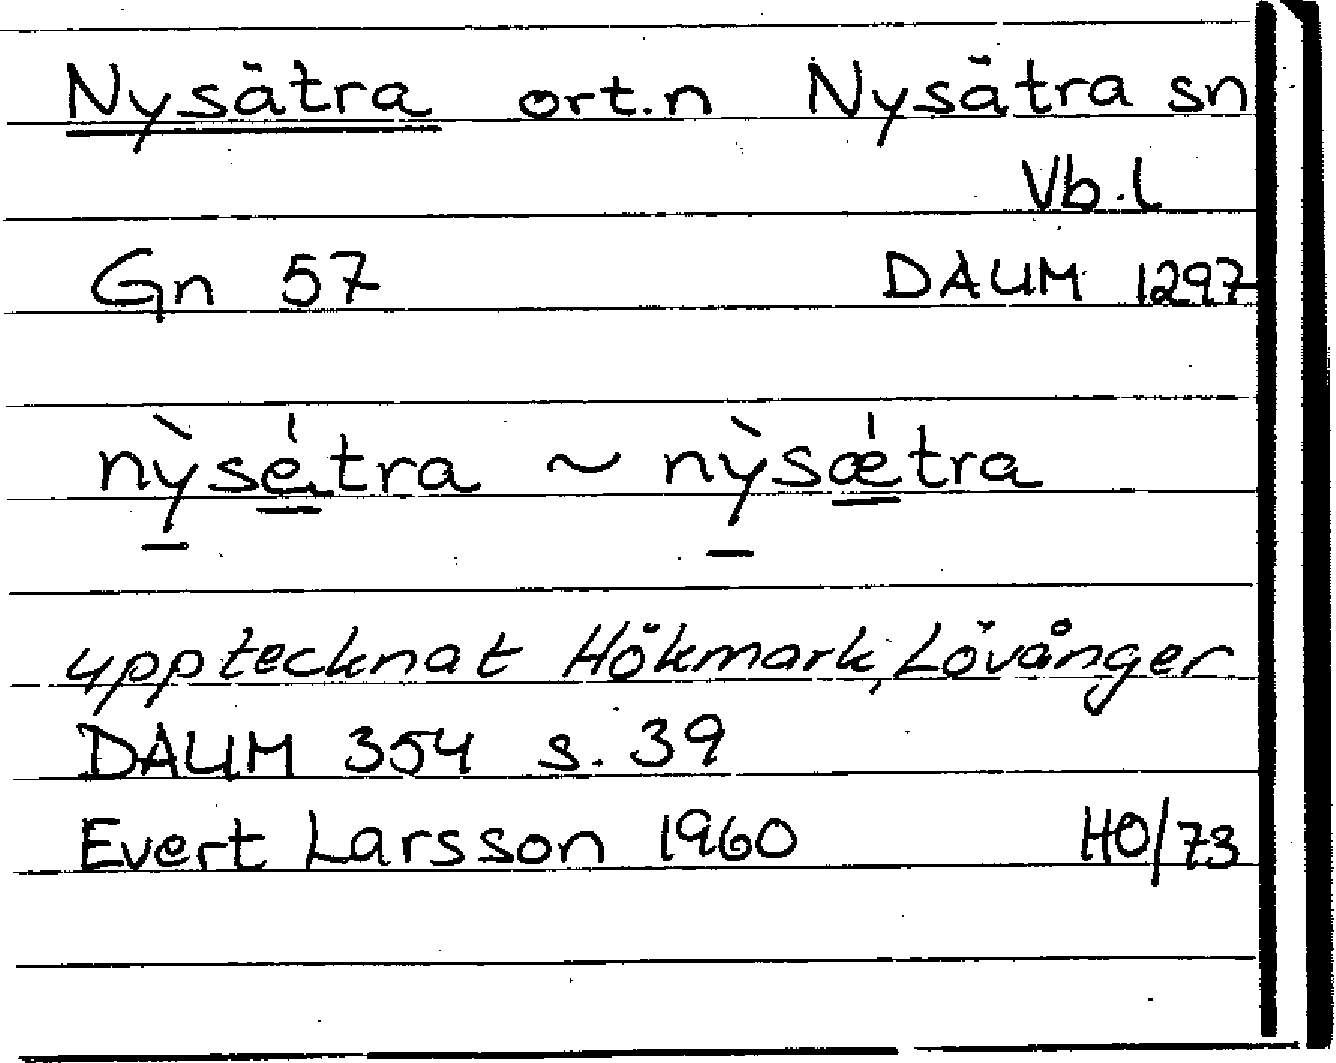 Nysätra ort.n Nysätra sn
Vb.l
Gn 57 DAUM 1297
nỳsétra ~ nỳsǽtra
upptecknat Hökmark, Lövånger
DAUM 354 s. 39
Evert Larsson 1960 HO/73